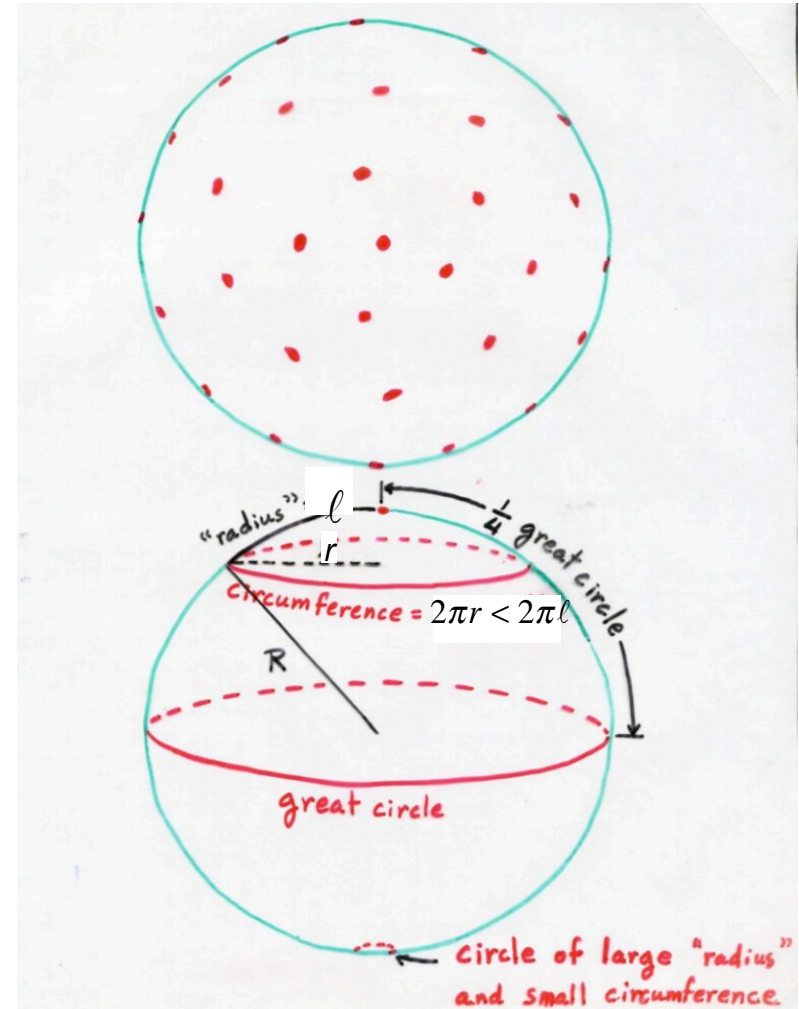 "radius"
ℓ
¼ great circle
r
circumference = 2πr < 2πℓ
R
great circle
circle of large "radius"
and small circumference.